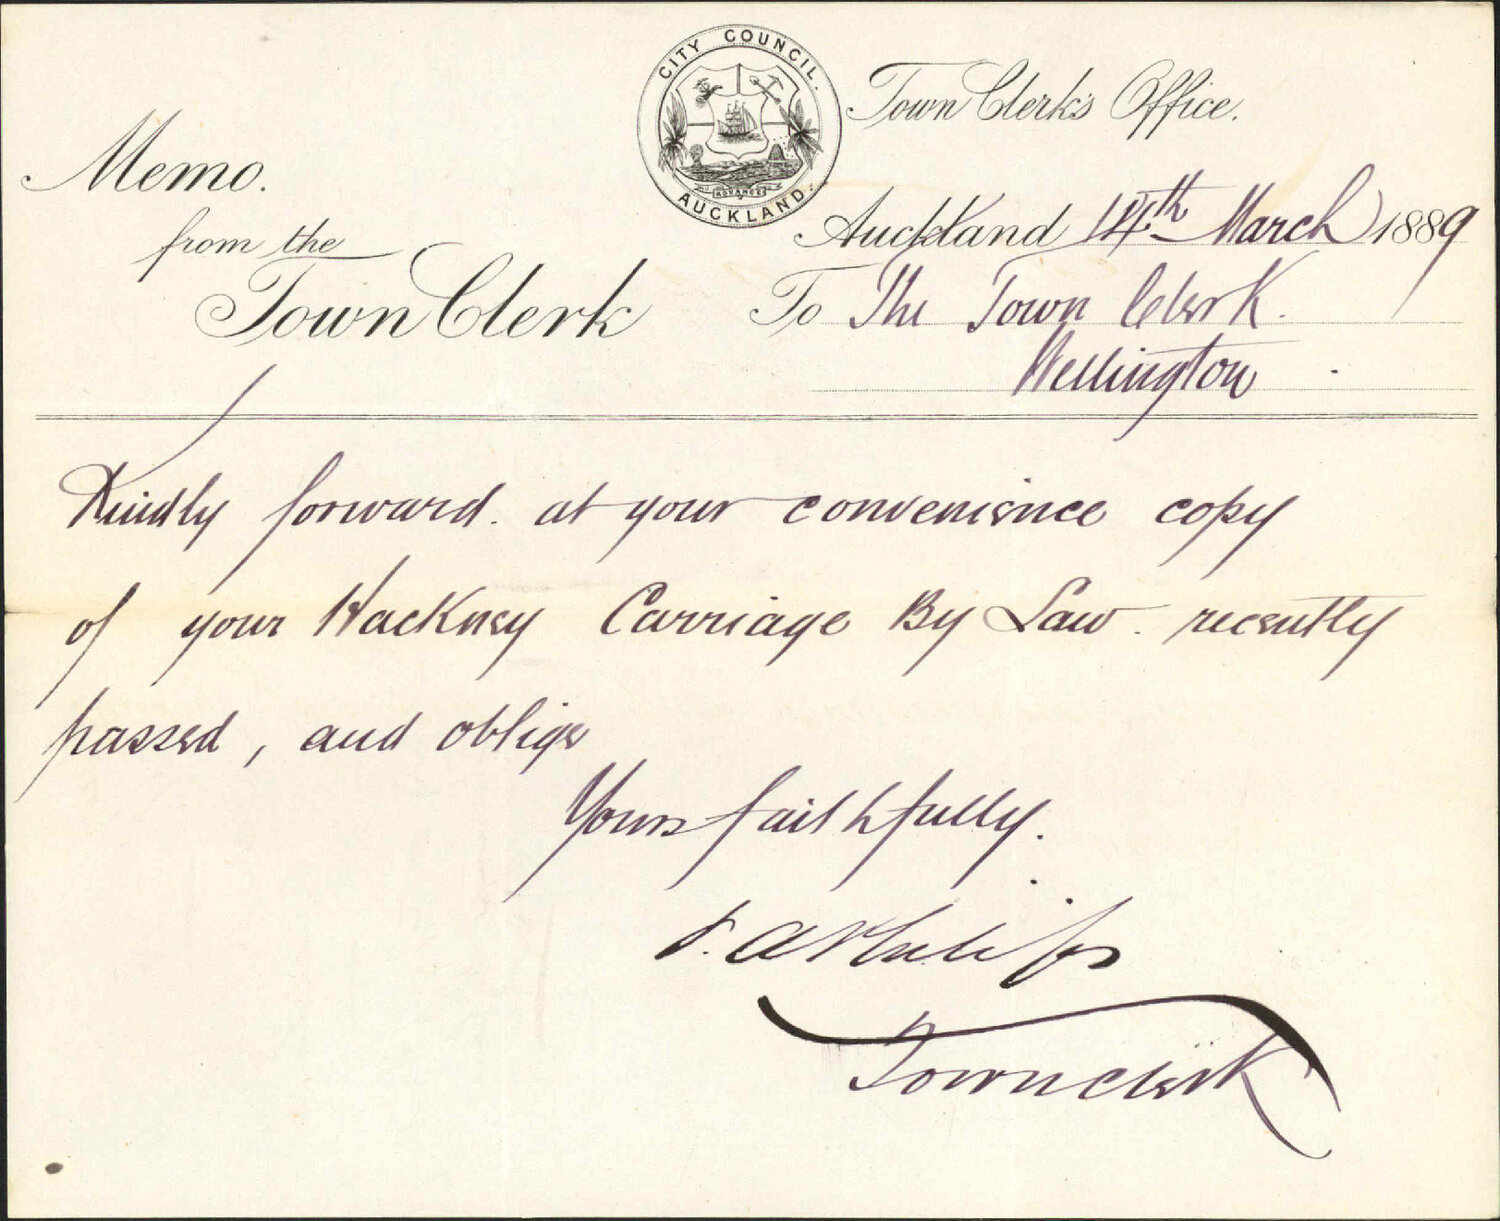 CITY COUNCIL.
AUCKLAND.
ADVANCE
Town Clerk's Office.
Memo.
from the
Town Clerk
Auckland 14th March 1889
To The Town Clerk.
Wellington
Kindly forward. at your convenience copy
of your Hackney Carriage By Law. recently
passed, and oblige
Yours faithfully.
P. A Philips
Town Clerk